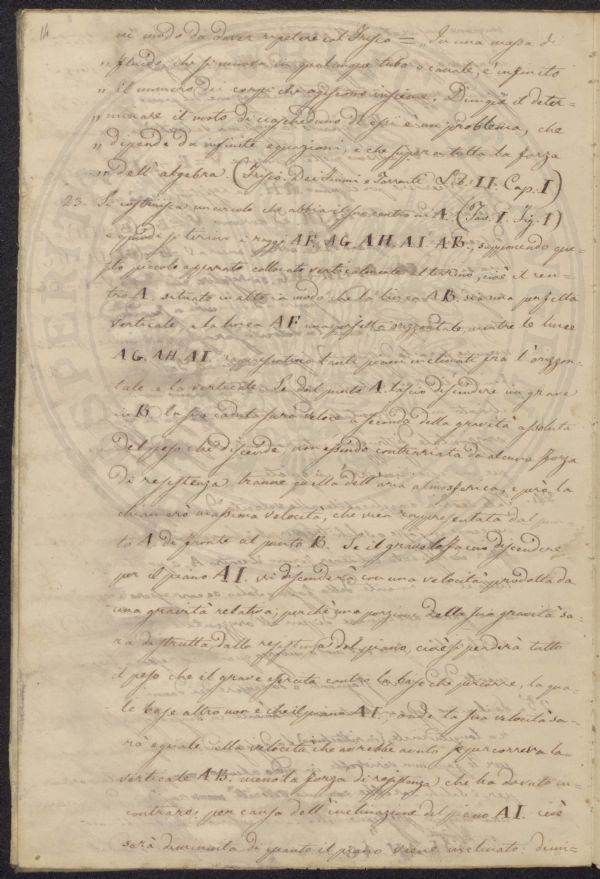 14
in modo da dover repetere col Frisio = „ In una massa di
„ fluido, che si muova in qualunque tubo o canale, è infinito
„ il numero dei corpi che agiscono insieme. Dunque il deter-
„ minare il moto di ciascheduno di essi è un problema, che
„ dipende da infinite equazioni, e che supera tutta la forza
„ dell'algebra. (Frisio. Dei Fiumi e Torrenti Lib. II. Cap. I)
23. Si costruisca un circolo che abbia il suo centro in A. (Tav. I. Fig. 1)
e quindi si tirino i raggi AF. AG. AH. AI. AB., supponendo que-
sto piccolo apparato collocato verticalmente al terreno, cioè il cen-
tro A. situato in alto, in modo che la linea AB. sia una perfetta
verticale, e la linea AF. una perfetta orizzontale, mentre le linee
AG. AH. AI. rappresentino tanti piani inclinati fra l'orizzon-
tale e la verticale. Se dal punto A. lascio discendere un grave
in B. la sua caduta sarà veloce a seconda della gravità assoluta
del peso che discende, non essendo contrariata da alcuna forza
di resistenza tranne quella dell'aria atmosferica, e però la
chiamerò massima velocità, che vien rappresentata dal pun-
to A. di fronte al punto B. Se il grave lo facciano discendere
per il piano AI. vi discenderà con una velocità prodotta da
una gravità relativa; perchè una porzione della sua gravità sa-
rà distrutta dalla resistenza del piano, cioè si perderà tutto
il peso che il grave esercita contro la base che percorre, la qua-
le base altro non è che il piano AI. onde la sua velocità sa-
rà eguale alla velocità che avrebbe avuto se percorreva la
verticale AB. meno la forza di resistenza che ha dovuto in-
contrare per causa dell'inclinazione del piano AI. cioè
sarà diminuita di quanto il piano viene inclinato: dimi-